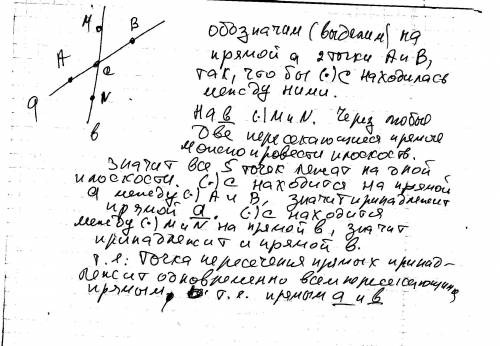 M
B
A
C
N
a
b
обозначим (выделим) на
прямой а 2 точки А и В,
так, что бы (•) С находилась
между ними.
На b (•) M и N. Через любые
две пересекающиеся прямые
можно провести плоскость.
Значит все 5 точек лежат на одной
плоскости. (•) С находится на прямой
а между (•) А и В, значит принадлежит
прямой а. (•) С находится
между (•) М и N на прямой b, значит
принадлежит и прямой b.
т.е. Точка пересечения прямых принад-
лежит одновременно всем пересекающимся
прямым, т.е. прямым а и b